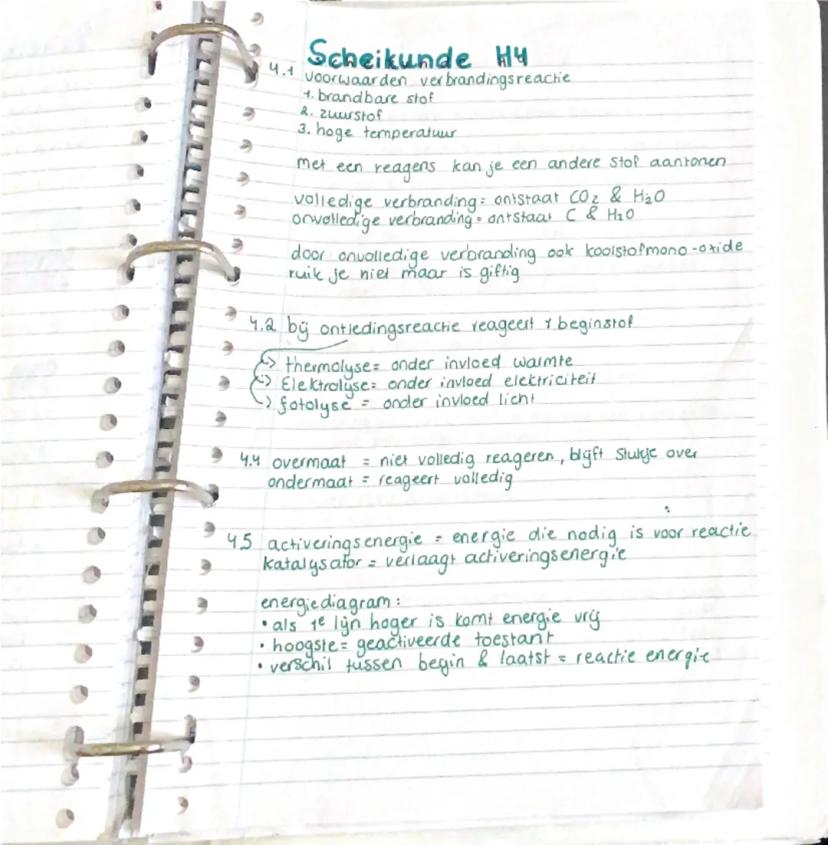 Scheikunde H4
4.1 voorwaarden verbrandingsreactie
1. brandbare stof
2. zuurstof
3. hoge temperatuur
met een reagens kan je een andere stof aantonen
volledige verbranding = ontstaat CO2 & H2O
onvolledige verbranding = ontstaat C & H2O
door onvolledige verbranding ook koolstofmono-oxide
ruik je niet maar is giftig
4.2 bij ontledingsreactie reageert 1 beginstof
↳ thermolyse = onder invloed warmte
↳ Elektrolyse = onder invloed elektriciteit
↳ fotolyse = onder invloed licht
4.4 overmaat = niet volledig reageren, blijft stukje over
ondermaat = reageert volledig
4.5 activeringsenergie = energie die nodig is voor reactie
katalysator = verlaagt activeringsenergie
energiediagram:
• als 1e lijn hoger is komt energie vrij
• hoogste = geactiveerde toestant
• verschil tussen begin & laatst = reactie energie